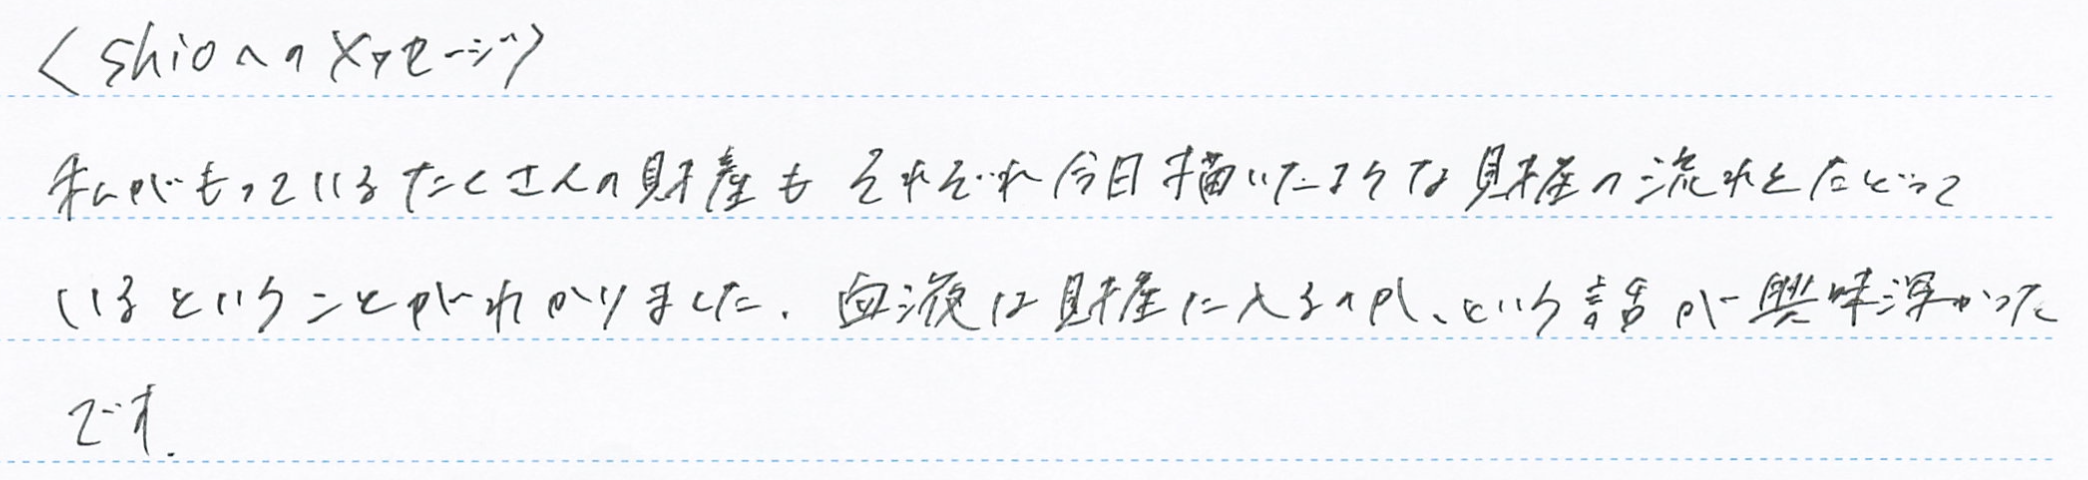 <shioへのメッセージ>
私がもっているたくさんの財産も それぞれ今日描いたような財産の流れをたどって
いるということがわかりました. 血液は財産に入るのか、という話が興味深かった
です.